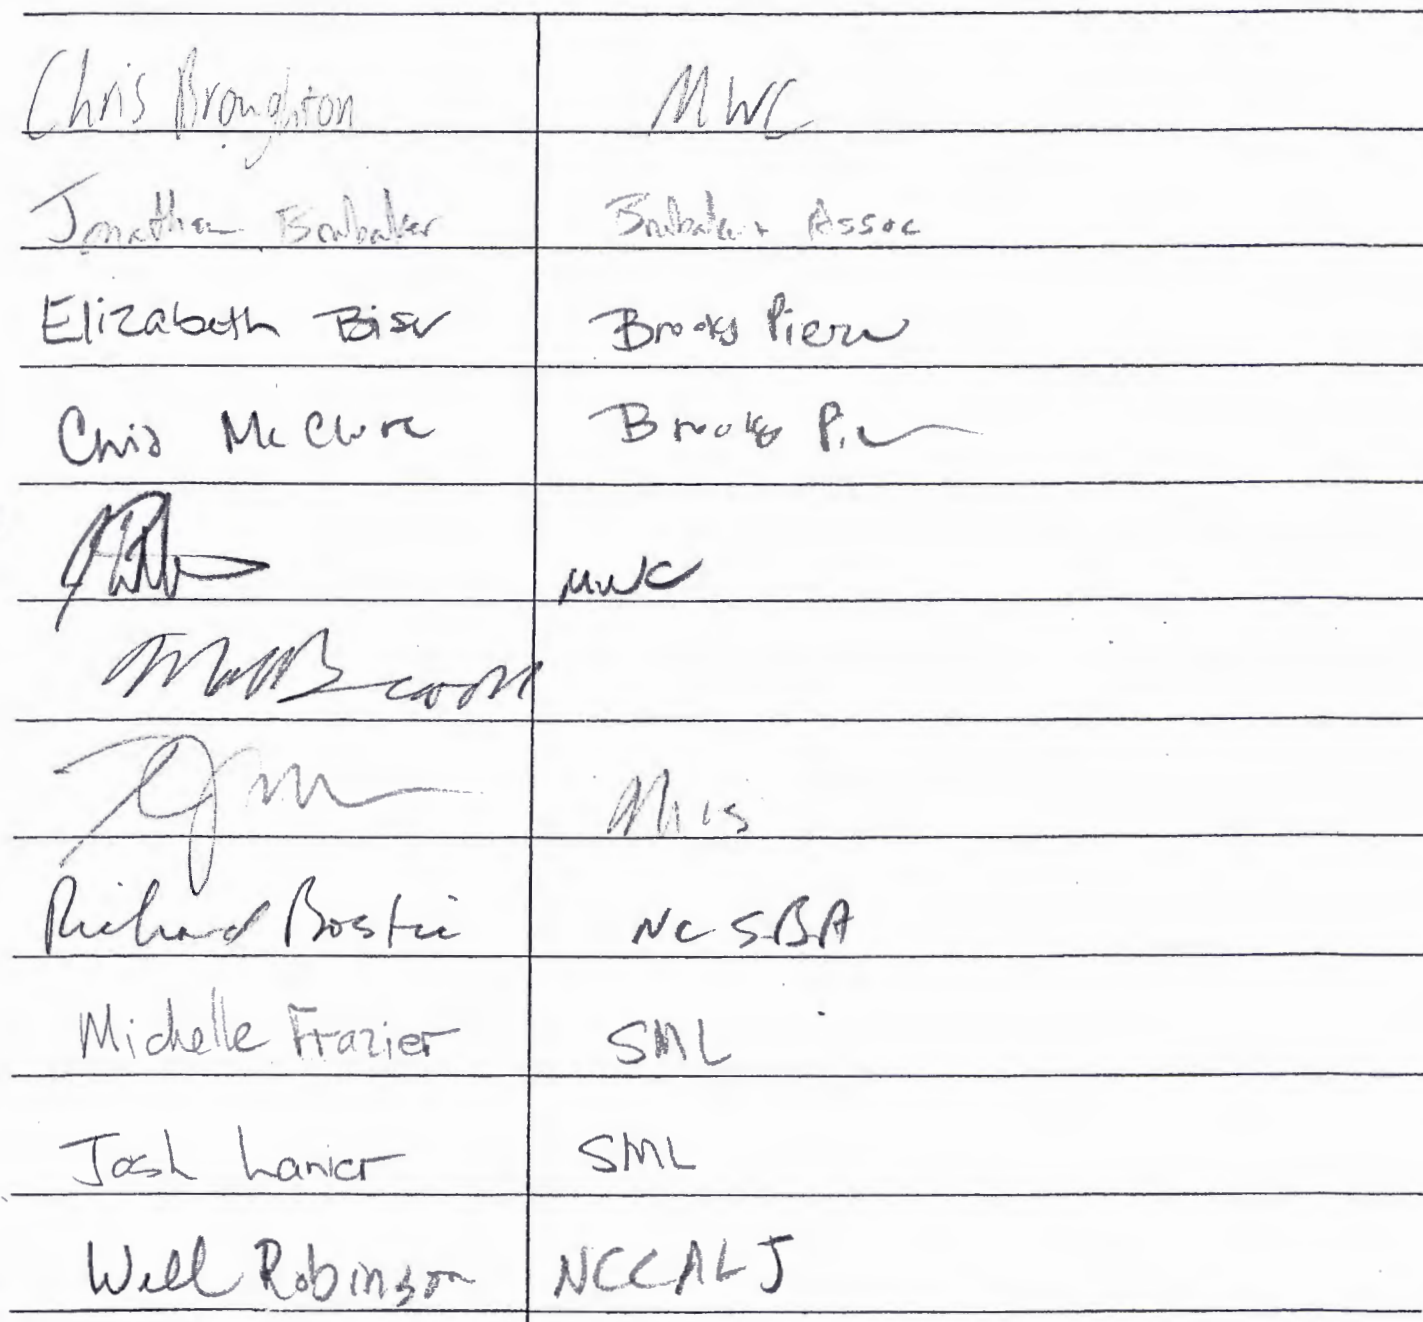 Chris Broughton MWC
Jonathan Brubaker Brubaker + Assoc
Elizabeth Biser Brooks Pierce
Chris McClure Brooks Pierce
MWC
Richard Bostic NCSBA
Michelle Frazier SML
Josh Lanier SML
Will Robinson NCCALJ